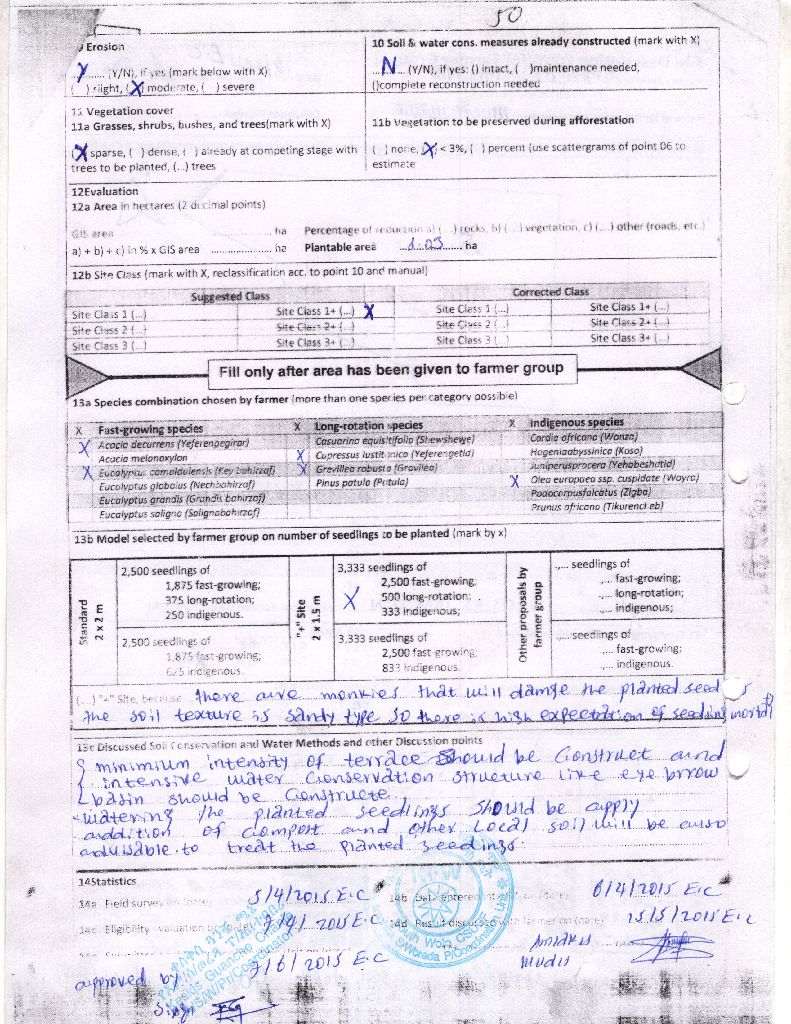 50
Erosion
Y...... (Y/N), if yes (mark below with X):
( ) slight, (X) moderate, ( ) severe
10 Soil & water cons. measures already constructed (mark with X)
...N... (Y/N), if yes: () intact, ( )maintenance needed,
()complete reconstruction needed
11 Vegetation cover
11a Grasses, shrubs, bushes, and trees(mark with X)
(X sparse, ( ) dense, ( ) already at competing stage with
trees to be planted, (...) trees
11b Vegetation to be preserved during afforestation
( ) none, (X) < 3%, ( ) percent (use scattergrams of point 06 to
estimate
12Evaluation
12a Area in hectares (2 decimal points)
GIS area ...................... ha Percentage of reduction a) (...) rocks, b) (...) vegetation, c) (...) other (roads, etc.)
a) + b) + c) in % x GIS area .................. ha Plantable area ha
12b Site Class (mark with X, reclassification acc. to point 10 and manual)
Suggested Class Corrected Class
Site Class 1 (...) Site Class 1+ (...) X Site Class 1 (...) Site Class 1+ (...)
Site Class 2 (...) Site Class 2+ (...) Site Class 2 (...) Site Class 2+ (...)
Site Class 3 (...) Site Class 3+ (...) Site Class 3 (...) Site Class 3+ (...)
Fill only after area has been given to farmer group
13a Species combination chosen by farmer (more than one species per category possible)
X Fast-growing species X Long-rotation species X Indigenous species
X Acacia decurrens (Yeferengegirar) Casuarina equisitifolia (Shewshewe) Cordia africana (Wanza)
Acacia melanoxylon X Cupressus lustitanica (Yeferengetid) Hageniaabyssinica (Koso)
X Eucalyptus camaldulensis (Key bahirzaf) X Grevillea robusta (Gravilea) Juniperusprocera (Yehabeshatid)
Eucalyptus globolus (Nechbahirzaf) Pinus patula (Patula) X Olea europaea ssp. cuspidate (Wayra)
Eucalyptus grandis (Grandis bahirzaf) Podocarpusfalcatus (Zigba)
Eucalyptus saligna (Salignabahirzaf) Prunus africana (Tikurenchet)
13b Model selected by farmer group on number of seedlings to be planted (mark by x)
Standard
2 x 2 m
2,500 seedlings of
1,875 fast-growing;
375 long-rotation;
250 indigenous.
2,500 seedlings of
1,875 fast-growing;
625 indigenous.
"+" Site
2 x 1.5 m
X
3,333 seedlings of
2,500 fast-growing;
500 long-rotation;
333 indigenous.
3,333 seedlings of
2,500 fast-growing;
833 indigenous.
Other proposals by
farmer group
..... seedlings of
.... fast-growing;
.... long-rotation;
.... indigenous;
..... seedlings of
.... fast-growing;
.... indigenous.
(...) "+" Site, because there are monkies that will damge the planted seed
the soil texture is sandy type so there is high expectation of seedling mortal
13c Discussed Soil Conservation and Water Methods and other Discussion points
minimium intensity of terrace should be Construct and
intensive water Conservation structure like eye brrow
basin should be Constructe
-watering the planted seedlings should be apply
addition of Compost and other Local soil will be also
aduisable to treat the planted seedings.
14Statistics
14a Field survey on (date) 5/4/2015 E.C 14b Data entered 6/4/2015 E.C
14c Eligibility evaluation 7/4/2015 E.C 14d Result discussed with farmer on (date) 15/5/2015 E.C
14e 7/6/2015 E.C
approved by
Sign